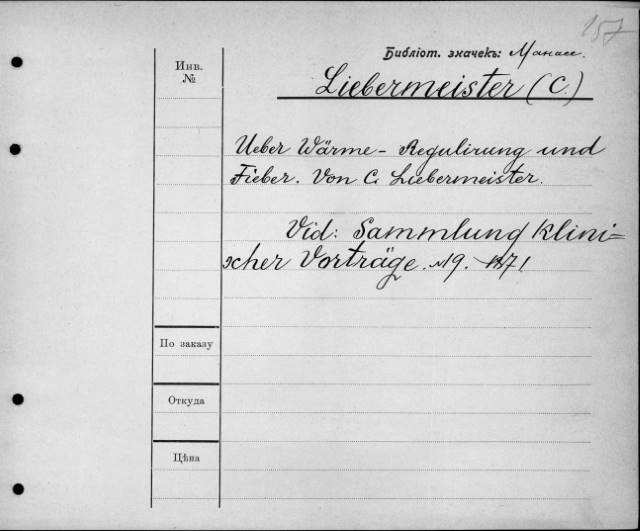 157
Библіот. значекъ: Манасс.
Инв.
№
Liebermeister (C.)
Ueber Wärme-Regulirung und
Fieber. Von C. Liebermeister.
Vid: Sammlung klini=
scher Vorträge. №19. 1871
По заказу
Откуда
Цѣна